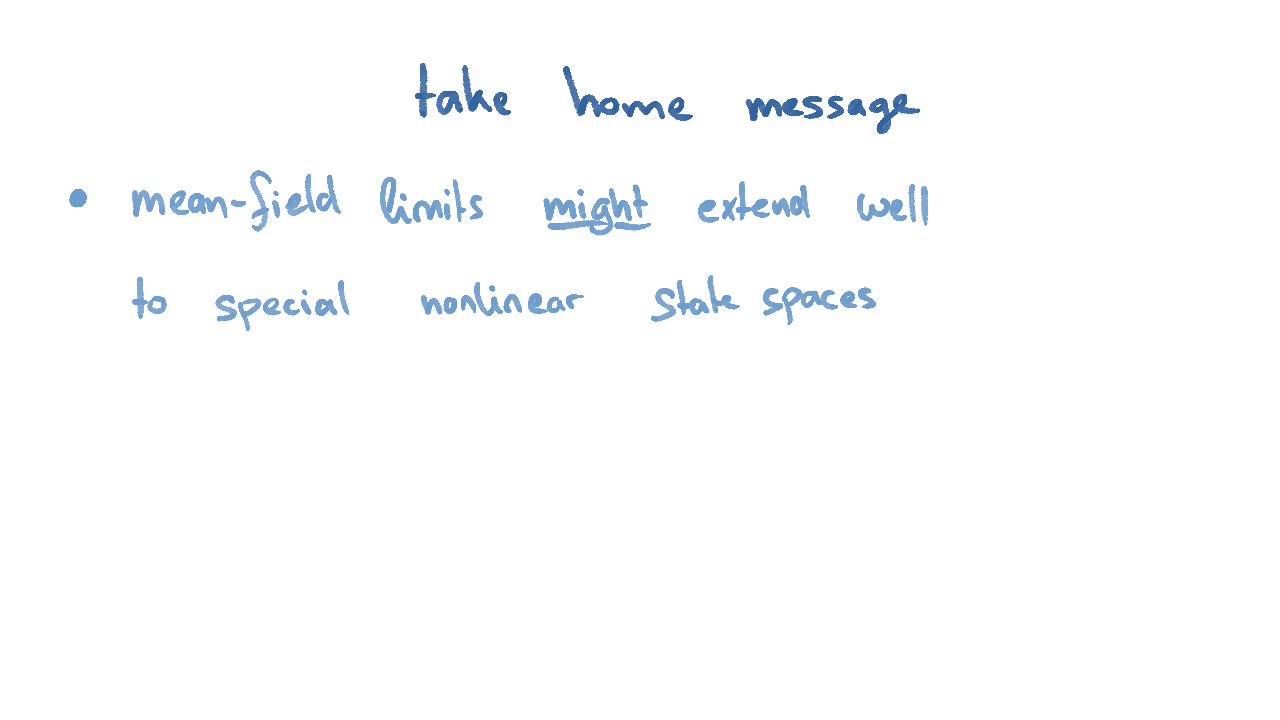 take home message
• mean-field limits might extend well
to special nonlinear state spaces